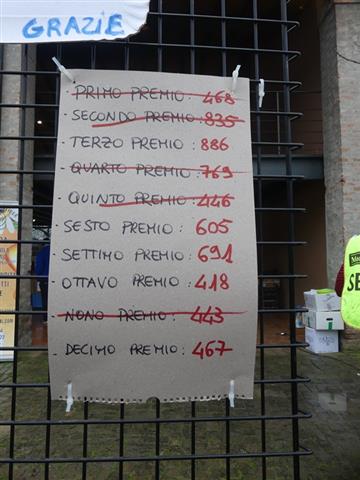 GRAZIE
- PRIMO PREMIO: 468
- SECONDO PREMIO: 835
- TERZO PREMIO: 886
- QUARTO PREMIO: 769
- QUINTO PREMIO: 446
- SESTO PREMIO: 605
- SETTIMO PREMIO: 691
- OTTAVO PREMIO: 418
- NONO PREMIO: 443
- DECIMO PREMIO: 467
SE